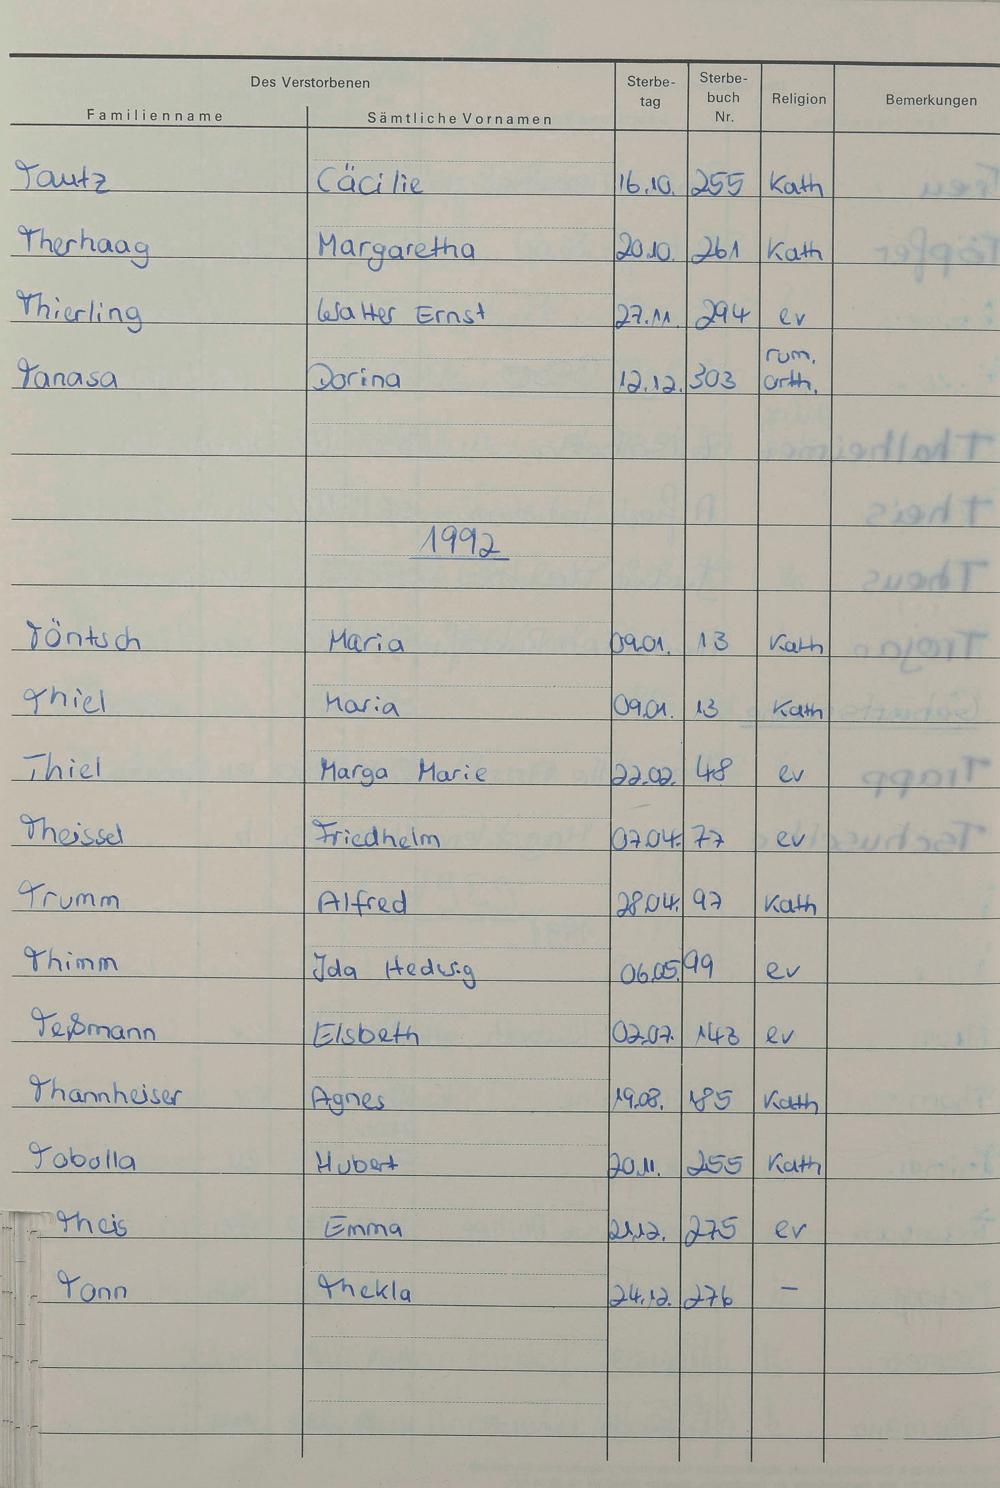 Des Verstorbenen
Familienname Sämtliche Vornamen Sterbe-tag Sterbe-buch Nr. Religion Bemerkungen
Tautz Cäcilie 16.10. 255 Kath
Therhaag Margaretha 20.10. 261 Kath
Thierling Walter Ernst 27.11. 294 ev
Tanasa Dorina 12.12. 303 rum. orth.
1992
Töntsch Maria 09.01. 13 Kath
Thiel Maria 09.01. 13 Kath
Thiel Marga Marie 22.02. 48 ev
Theissel Friedhelm 07.04. 77 ev
Trumm Alfred 28.04. 97 Kath
Thimm Ida Hedwig 06.05. 99 ev
Teßmann Elsbeth 02.07. 143 ev
Thannheiser Agnes 19.08. 185 Kath
Tobolla Hubert 20.11. 255 Kath
Theis Emma 21.12. 275 ev
Tonn Thekla 24.12. 276 —